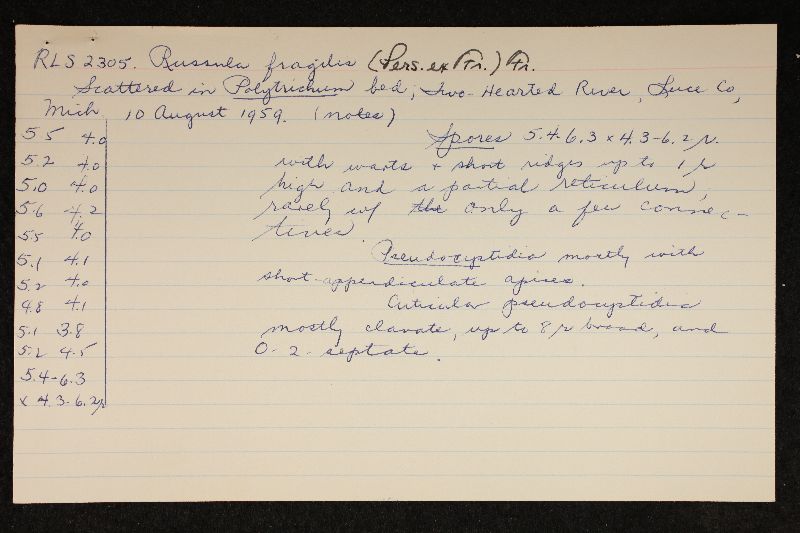 RLS 2305. Russula fragilis (Pers. ex Fr.) Fr.
Scattered in Polytrichum bed; Two-Hearted River, Luce Co,
Mich, 10 August 1959. (notes)
5.5 4.0
5.2 4.0
5.0 4.0
5.6 4.2
5.5 4.0
5.1 4.1
5.2 4.0
4.8 4.1
5.1 3.8
5.2 4.5
5.4-6.3
x 4.3-6.2µ
Spores 5.4-6.3 x 4.3-6.2µ.
with warts + short ridges up to 1µ
high and a partial reticulum,
rarely w/ the only a few connec-
tives
Pseudocystidia mostly with
short-appendiculate apices.
Cuticular pseudocystidia
mostly clavate, up to 8µ broad, and
0-2-septate.